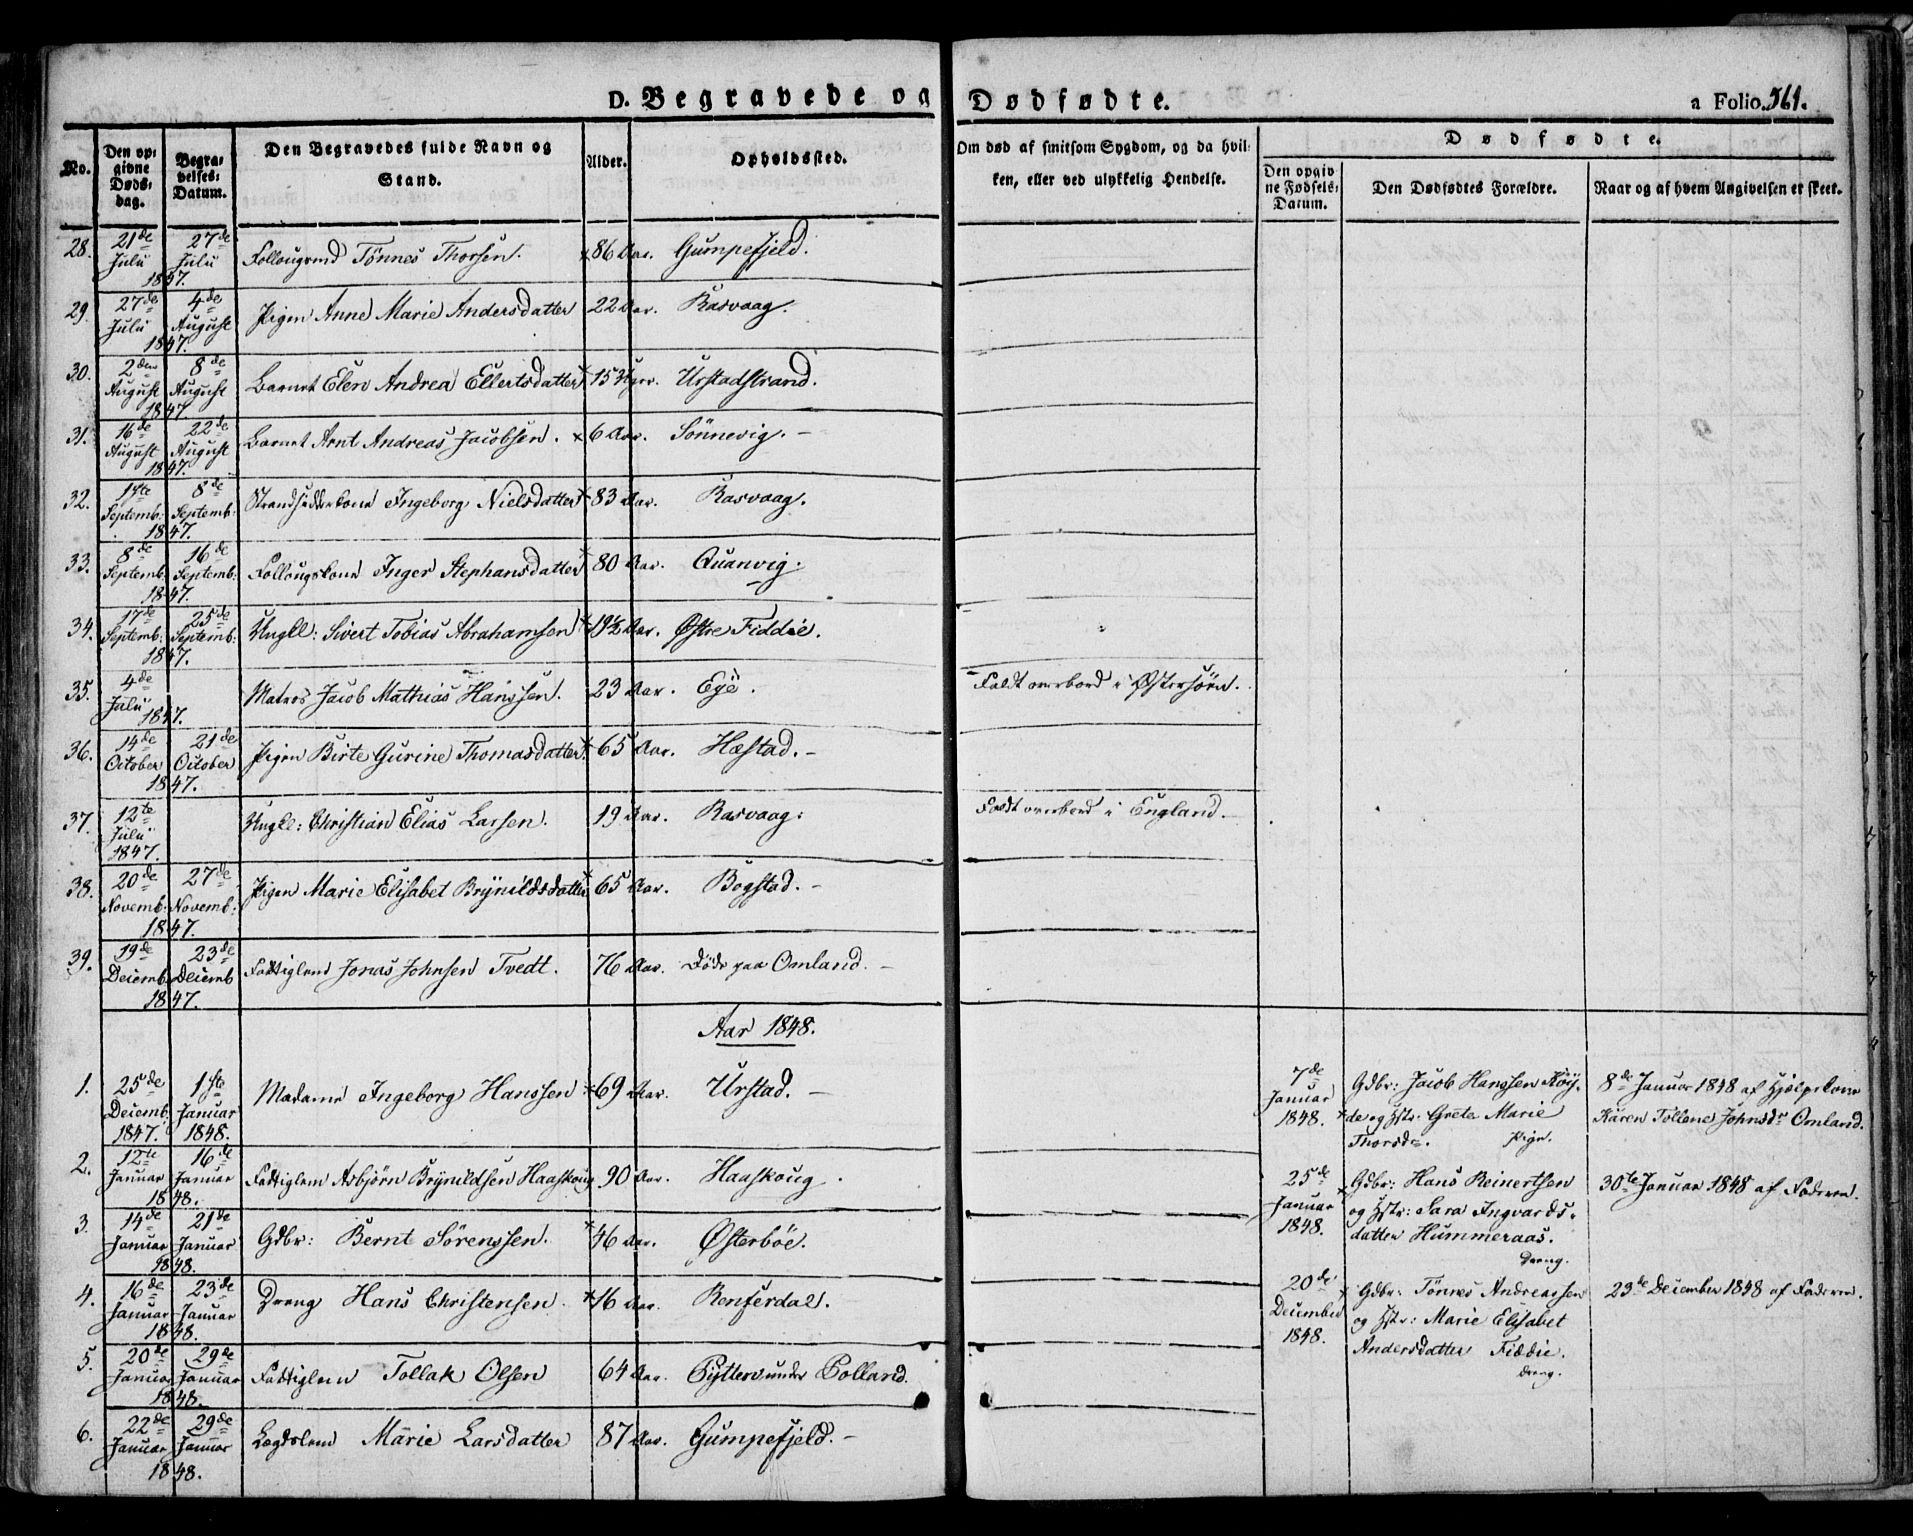 D. Begravede og Dødfødte. a Folio 561.
No.
Den opgivne Døds: dag.
Begravelses: Datum.
Den Begravedes fulde Navn og Stand.
Alder.
Opholdssted.
Om død af smitsom Sygdom, og da hvilken, eller ved ulykkelig Hendelse.
Dødfødte.
Den opgivne Fødsels: Datum.
Den Dødfødtes Forældre.
Naar og af hvem Angivelsen er skeet.
28. 21de Julii 27de Julii 1847. Tönnes Thorsen. 86 Aar. Gumpefjeld.
29. 27de Julii 4de August 1847. Pigen Anne Marie Andersdatter 22 Aar. Rasvaag.
30. 2den August 8de August 1847. Barnet Elen Andrea Ellertsdatter 15 Urstadstrand.
31. 16de August 22de August 1847. Barnet Arnt Andreas Jacobsen. 6 Aar. Sönnevig.
32. 1ste Septemb: 8de Septemb: 1847. Strandsidderkone Ingeborg Nielsdatter 83 Aar. Rasvaag.
33. 8de Septemb: 16de Septemb: 1847. Follougskone Inger Stephansdatter 80 Aar. Quanvig.
34. 17de Septemb: 25de Septemb: 1847. Ungkl: Sivert Tobias Abrahamsen 19½ Aar. Østre Fiddie.
35. 4de Julii 1847. Matros Jacob Mathias Hanssen. 23 Aar. Eye. Faldt overbord i Østersöen.
36. 14de October 21de October 1847. Pigen Birte Gurine Thomasdatter. 65 Aar. Hæstad.
37. 12te Julii 1847. Ungkl: Christian Elias Larsen. 19 Aar. Rasvaag. Faldt overbord i England.
38. 20de Novemb: 27de Novemb: 1847. Pigen Marie Elisabet Brynildsdatter 65 Aar. Bogstad.
39. 19de Decemb 23de Decemb 1847. Fattiglem Jonas Johnsen Tvedt. 76 Aar. Døde paa Omland.
Aar 1848.
1. 25de Decemb. 1847. 1ste Januar 1848. Madame Ingeborg Hanssen 69 Aar. Urstad.
7de Januar 1848. Gdbr: Jacob Hanssen Röy-
de og Hstr. Grete Marie
Thorsdr. Pige.
8de Januar 1848 af Hjelpekone
Karen Tollene Johnsdr Omland.
2. 12te Januar 16de Januar 1848. Fattiglem Asbjörn Brynildsen Haaskoug 90 Aar. Haaskoug.
25de Januar 1848. Gdbr: Hans Reinertsen
og Hstr: Sara Ingvards-
datter Hummeraas.
Dreng.
30te Januar 1848 af Faderen.
3. 14de Januar 21de Januar 1848. Gdbr: Bernt Sörenssen. 46 Aar. Østerböe.
4. 16de Januar 23de Januar 1848. Dreng Hans Christensen. 16 Aar. Renferdal.
20de December 1848. Gdbr: Tönnes Andreassen
og Hstr: Marie Elisabet
Andersdatter Fiddie.
Dreng.
23de December 1848 af Faderen.
5. 20de Januar 29de Januar 1848. Fattiglem Tollak Olsen 64 Aar. under Dolland.
6. 22de Januar 29de Januar 1848. Lægdslem Marie Larsdatter 87 Aar. Gumpefjeld.